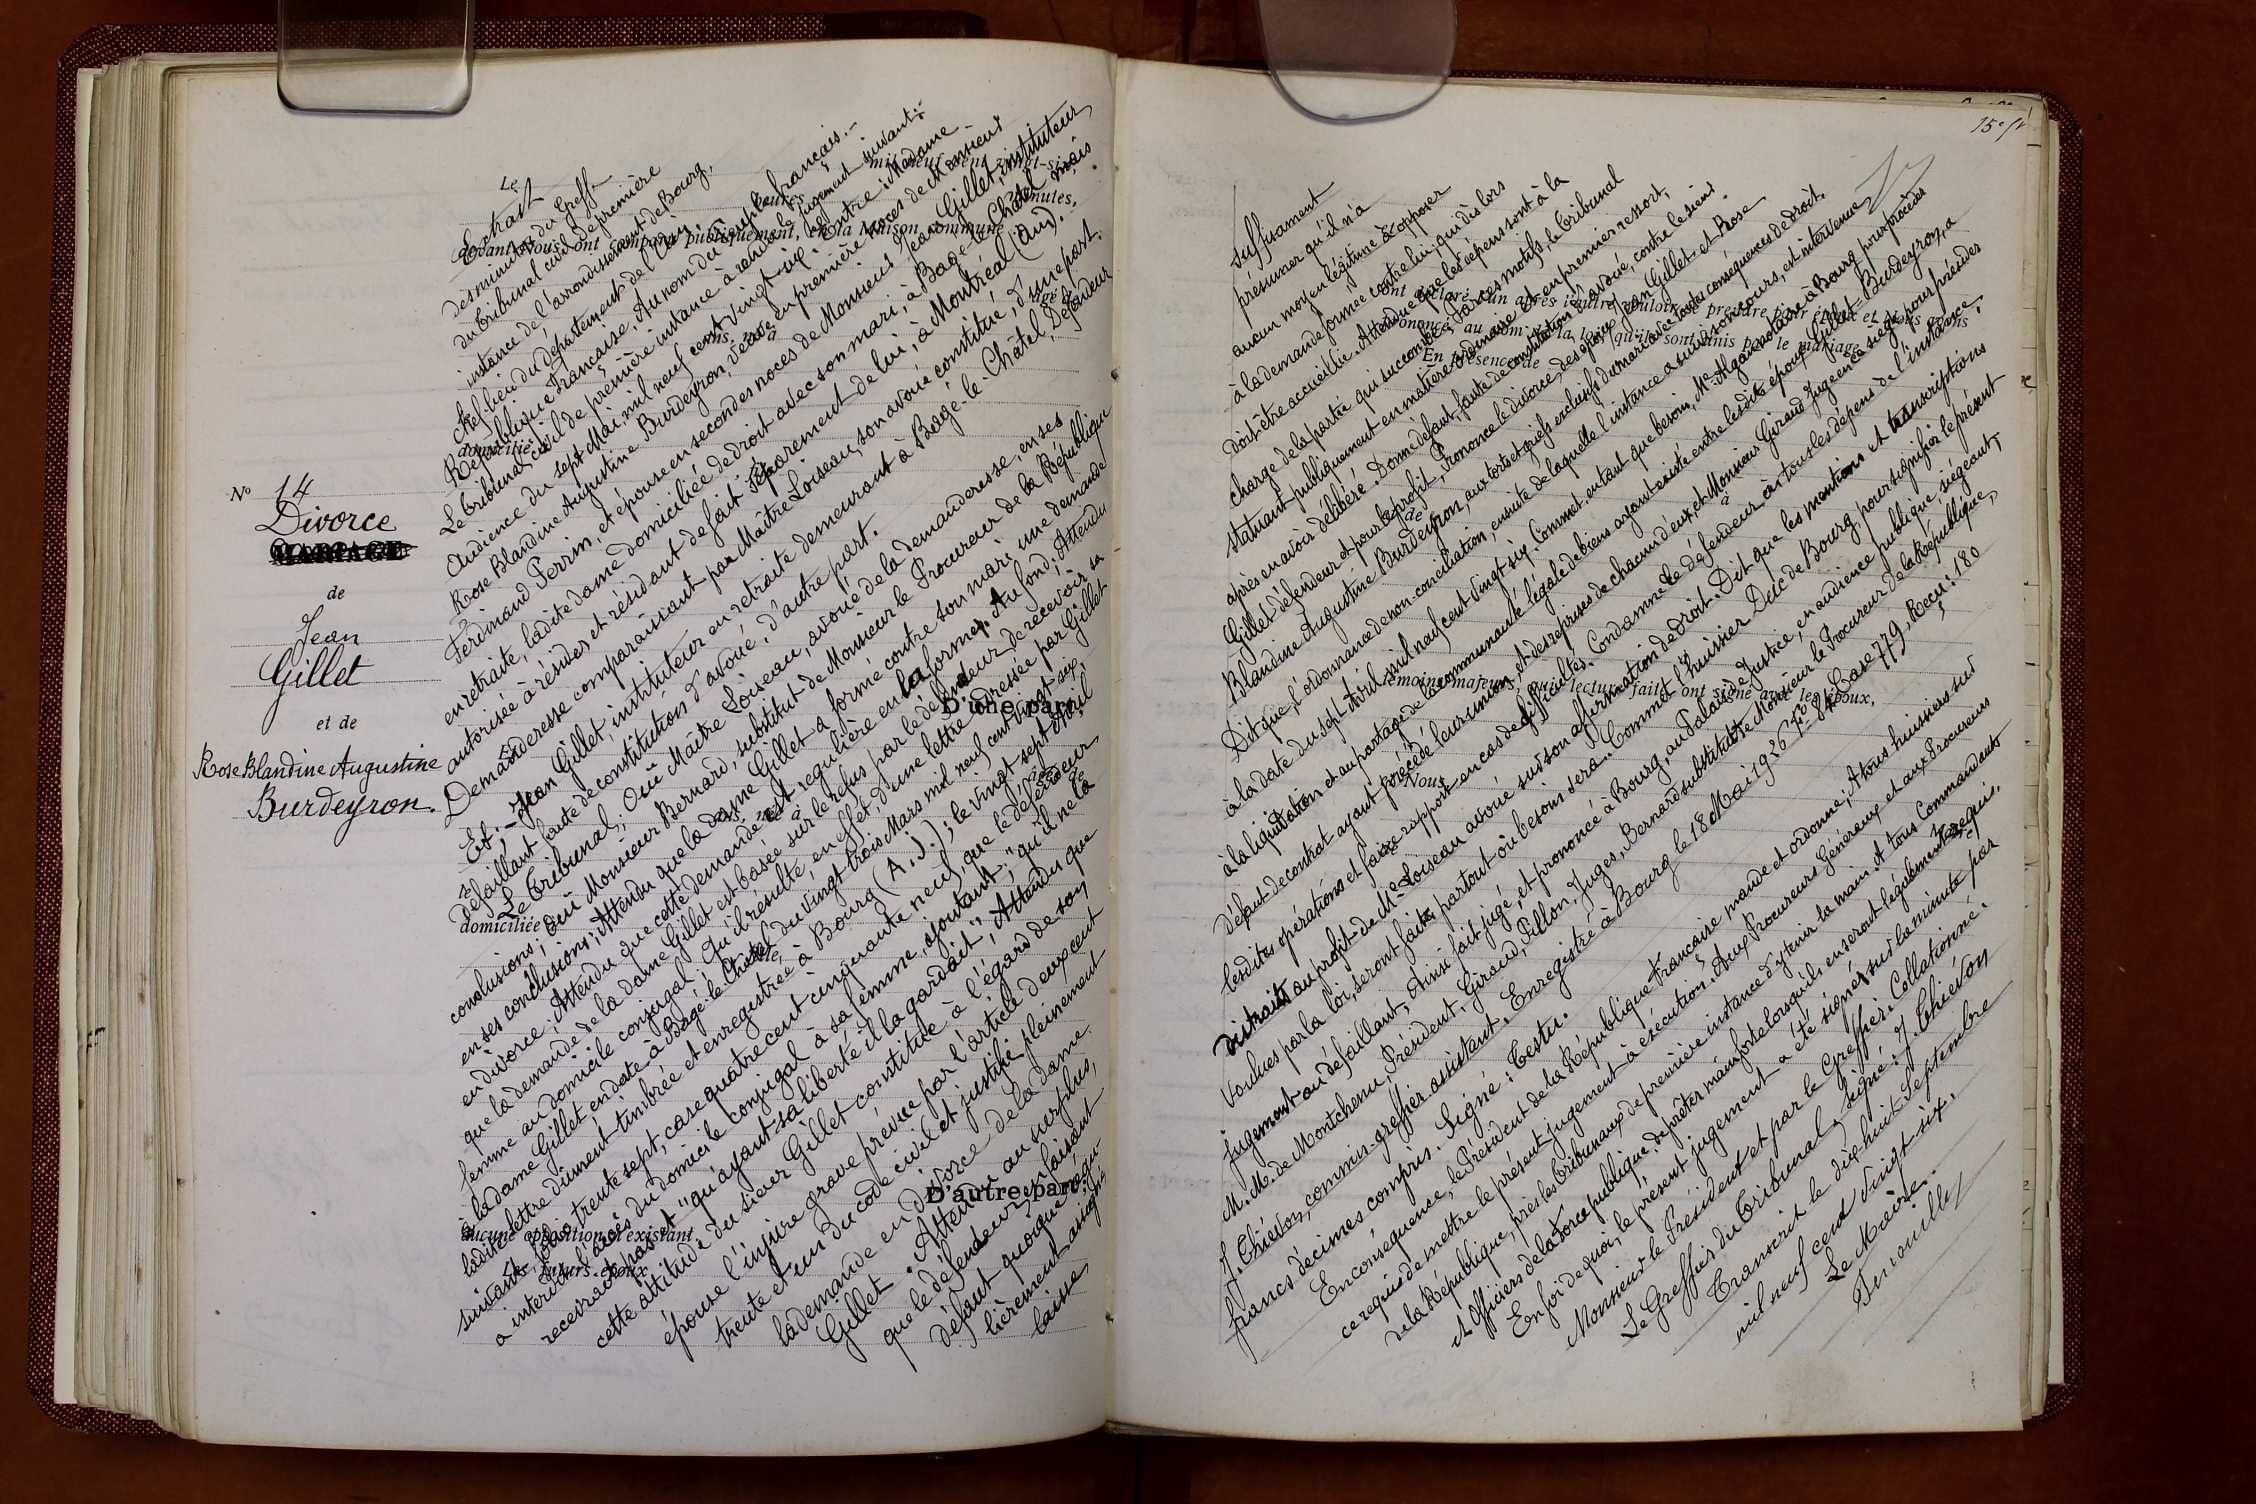 N° 14
Divorce
MARIAGE
de
Jean
Gillet
et de
Rose Blandine Augustine
Burdeyron.
Le
mil neuf cent vingt-six
heures
minutes,
devant Nous, ont comparu publiquement, en la Maison commune
domicilié
D'une part,
domiciliée
D'autre part;
aucune opposition n'existant.
Les futurs époux
Extrait
des minutes du Greffe
du tribunal civil de première
instance de l'arrondissement de Bourg,
chef-lieu du département de l'Ain.
République Française. Au nom du Peuple français.-
Le tribunal civil de première instance a rendu le jugement suivant:-
Audience du sept Mai, mil neuf cent vingt-six. Entre: Madame
Rose Blandine Augustine Burdeyron, veuve en première noces de Monsieur
Ferdinand Perrin, et épouse en secondes noces de Monsieur Jean Gillet, instituteur
en retraite, ladite dame domiciliée de droit avec son mari, à Bagé-le-Châtel mais
autorisée à résider et résidant de fait séparement de lui, à Montréal (Ain).
Demanderesse comparaissant par Maître Loiseau, son avoué constitué, d'une part.
Et.- Jean Gillet, instituteur en retraite demeurant à Bagé-le-Châtel, Défendeur
défaillant faute de constitution d'avoué, d'autre part.
Le Tribunal; Ouï Maître Loiseau, avoué de la demanderesse, en ses
conclusions; Ouï Monsieur Bernard, substitut de Monsieur le Procureur de la République
en ses conclusions; Attendu que la dame Gillet a formé contre son mari une demande
en divorce; Attendu que cette demande est régulière en la forme. Au fond: Attendu
que la demande de la dame Gillet est basée sur le refus par le défendeur de recevoir sa
femme au domicile conjugal. Qu'il résulte, en effet, d'une lettre adressée par Gillet
à la dame Gillet en date à Bagé-le-Châtel du vingt trois Mars mil neuf cent vingt-six,
ladite lettre dûment timbrée et enregistrée à Bourg (A.J.); le vingt sept Avril
suivant, folio trente sept, case quatre cent cinquante neuf, que le défendeur
a interdit l'accès du domicile conjugal à sa femme, ajoutant: "qu'il ne la
recevra pas et "qu'ayant sa liberté il la gardait"; Attendu que
cette attitude du sieur Gillet constitue à l'égard de son
épouse l'injure grave prévue par l'article deux cent
trente et un du code civil et justifie pleinement
la demande en divorce de la dame
Gillet. Attendu au surplus,
que le défendeur, en faisant
défaut quoique régu-
lièrement assigné
laisse
suffisament
présumer qu'il n'a
aucun moyen légitime à opposer
à la demande formée contre lui; qui dès lors
doit être accueillie. Attendu que les dépens sont à la
charge de la partie qui succombe. Par ces motifs, le tribunal
statuant publiquement en matière ordinaire et en premier ressort,
après en avoir délibéré. Donne défaut, faute de constitution d'avoué, contre le sieur
Gillet défendeur et pour le profit, Prononce le divorce, des époux Jean Gillet et Rose
Blandine Augustine Burdeyron, aux torts et griefs exclusifs du mari avec toutes conséquences de droit.
Dit que, l'ordonnance de non conciliation, ensuite de laquelle l'instance a suivi son cours, est intervenue
à la date du sept Avril mil neuf cent vingt six. Commet, en tant que besoin, Me Algoin notaire à Bourg pour procéder
à la liquidation et au partage de la communauté légale de biens ayant existé entre lesdits époux Gillet-Burdeyron, à
défaut de contrat ayant précédé leur union, et des reprises de chacun d'eux, et Monsieur Giraud Juge en ce siège pour présider
lesdites opérations et faire rapport en cas de difficultés. Condamne le défendeur, en tous les dépens de l'instance,
distraits au profit de Me Loiseau avoué sur son affirmation de droit. Dit que les mentions et transcriptions
voulues par la loi, seront faites partout où besoins sera. Commet l'huissier Duc de Bourg, pour signifier le présent
jugement au défaillant, Ainsi fait jugé, et prononcé à Bourg, au Palais de Justice, en audience publique, siégeant,
M.M. de Montchenu, Président, Giraud, Pillon, Juges, Bernard substitut de Monsieur le Procureur de la République,
J. Thiévon, commis-greffier assistant. Enregistré à Bourg le 18 Mai 1926 Fo 84 Case 779, Reçu: 180
francs décimes compris. Signé: Testu.
En conséquence, le Président de la République Française mande et ordonne; A tous huissiers sur
ce requis de mettre le présent jugement à exécution. Aux Procureurs Généraux et aux Procureurs
de la République, près les tribunaux de première instance d'y tenir la main. A tous Commandants
et Officiers de la Force publique, de prêter mainforte lorsqu'ils en seront légalement requis.
En foi de quoi, le présent jugement a été signé sur la minute par
Monsieur le Président et par le Greffier. Collationné.
Le Greffier du Tribunal. Signé: J. Thiévon
Transcrit le dix huit Septembre
mil neuf cent vingt six.
Le Maire.
15e ft
ont déclaré l'un après l'autre vouloir se prendre pour époux et Nous avons
prononcé, au nom de la loi, qu'ils sont unis par le mariage.
En présence de
témoins majeurs, qui, lecture faite, ont signé avec les époux,
et Nous